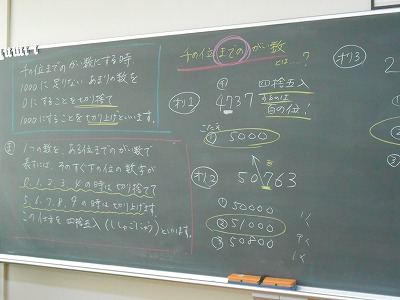 千の位までのがい数にする時、
1000に足りない あまりの数を
0にすることを切り捨て
1000にすることを切り上げといいます。
1つの数を、ある位までのがい数で
表すには、そのすぐ下の位の数字が
0.1.2.3.4の時は切り捨てて
5.6.7.8.9の時は切り上げます
この仕方を四捨五入(ししゃごにゅう)といいます。
千の位までのがい数
とは…?
オリ1
④
4737
四捨五入
するのは
百の位!
こたえ
5000
オリ2
50763
① 50000
② 51000
③ 50800
オリ3
2